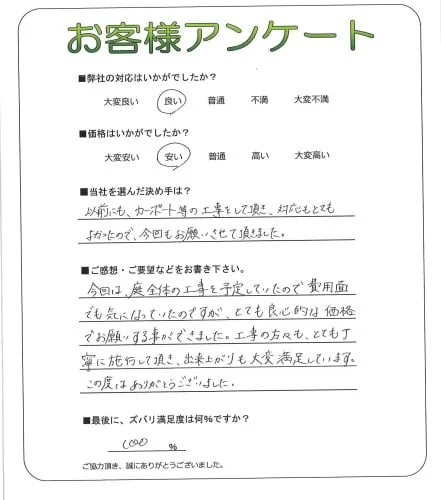 お客様アンケート
■弊社の対応はいかがでしたか？
大変良い 良い 普通 不満 大変不満
■価格はいかがでしたか？
大変安い 安い 普通 高い 大変高い
■当社を選んだ決め手は？
以前にも、カーポート等の工事をして頂き、対応もとても
よかったので、今回もお願いさせて頂きました。
■ご感想・ご要望などをお書き下さい。
今回は、庭全体の工事を予定していたので費用面
でも気になっていたのですが、とても良心的な価格
でお願いする事ができました。工事の方々も、とても丁
寧に施行して頂き、出来上がりも大変満足しています。
この度はありがとうございました。
■最後に、ズバリ満足度は何％ですか？
％
ご協力頂き、誠にありがとうございました。